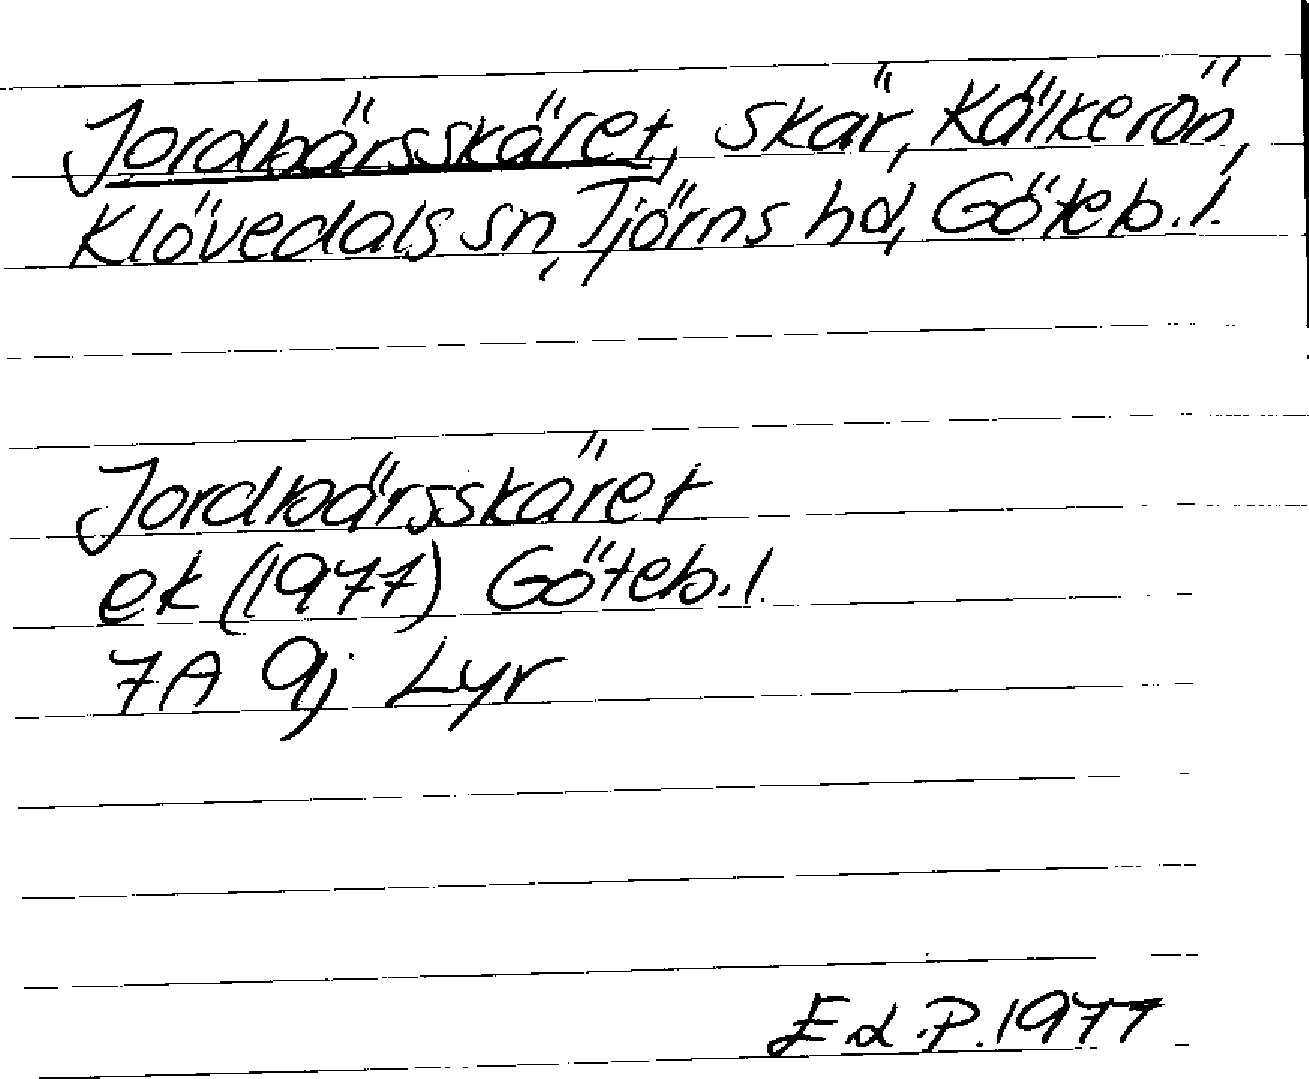 Jordbärsskäret, skär, Kälkerön,
Klövedals sn, Tjörns hd, Göteb. l.
Jordbärsskäret
ek (1977) Göteb. l.
7A 9j Lyr
Ed. P. 1977